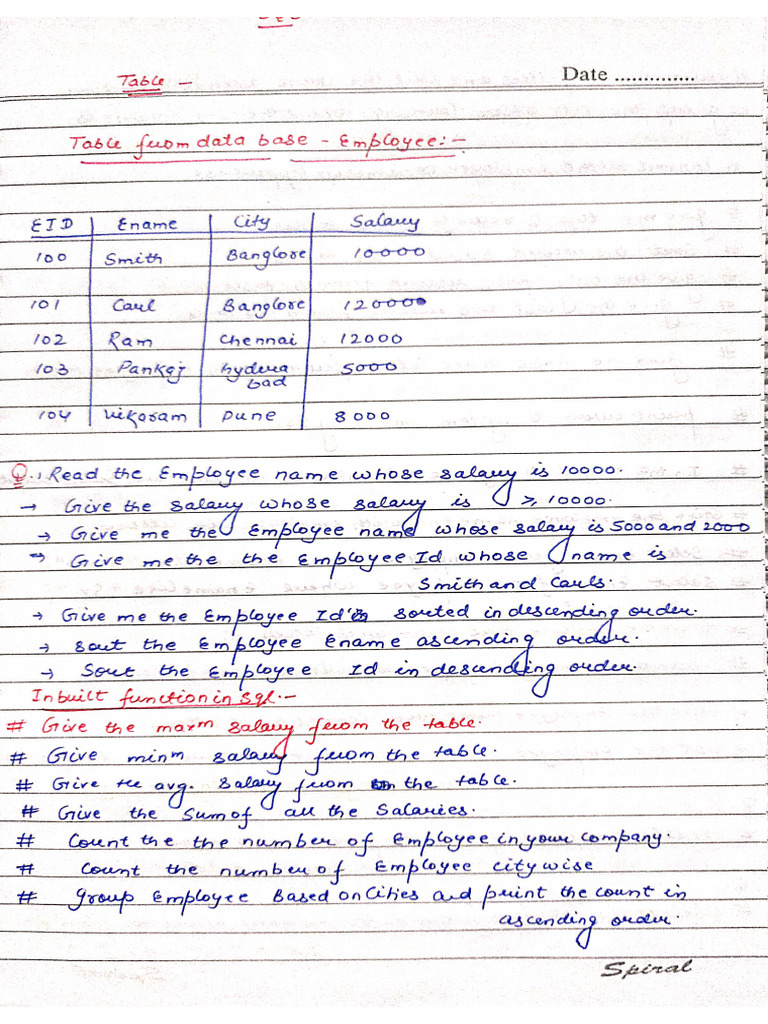 Table -
Date ..............
Table from data base - Employee:-
EID Ename City Salary
100 Smith Banglore 10000
101 Carl Banglore 120000
102 Ram Chennai 12000
103 Pankaj hydera
bad 5000
104 Vikaram Pune 8000
Q., Read the Employee name whose salary is 10000.
→ Give the salary whose salary is >, 10000.
→ Give me the Employee name whose salary is 5000 and 2000
→ Give me the the Employee Id whose name is
Smith and Carls.
→ Give me the Employee Id's sorted in descending order.
→ sort the Employee Ename ascending order.
→ Sort the Employee Id in descending order.
Inbuilt function in sql:-
# Give the maxm salary from the table.
# Give minm salary from the table.
# Give the avg. salary from the table.
# Give the sum of all the salaries.
# Count the the number of Employee in your company.
# Count the number of Employee city wise
# Group Employee Based on Cities and print the count in
ascending order.
Spiral